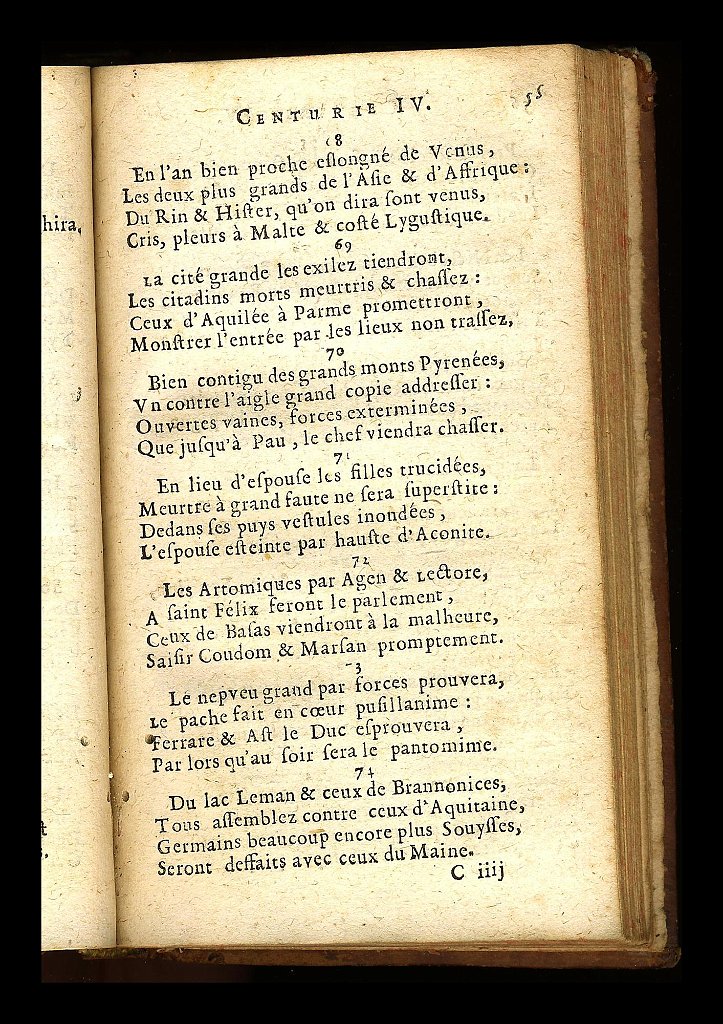 hira,
CENTURIE IV.
55
68
En l'an bien proche eſlongné de Venus,
Les deux plus grands de l'Aſie & d'Affrique :
Du Rin & Hiſter, qu'on dira ſont venus,
Cris, pleurs à Malte & coſté Lyguſtique.
69
La cité grande les exilez tiendront,
Les citadins morts meurtris & chaſſez :
Ceux d'Aquilée à Parme promettront,
Monſtrer l'entrée par les lieux non traſſez,
70
Bien contigu des grands monts Pyrenées,
Vn contre l'aigle grand copie addreſſer :
Ouvertes vaines, forces exterminées,
Que juſqu'à Pau, le chef viendra chaſſer.
71
En lieu d'eſpouſe les filles trucidées,
Meurtre à grand faute ne ſera ſuperſtite :
Dedans ſes puys veſtules inondées,
L'eſpouſe eſteinte par hauſte d'Aconite.
72
Les Artomiques par Agen & Lectore,
A ſaint Félix feront le parlement,
Ceux de Baſas viendront à la malheure,
Saiſir Coudom & Marſan promptement.
73
Le nepveu grand par forces prouvera,
Le pache fait en cœur puſillanime :
Ferrare & Aſt le Duc eſprouvera,
Par lors qu'au ſoir ſera le pantomime.
74
Du lac Leman & ceux de Brannonices,
Tous aſſemblez contre ceux d'Aquitaine,
Germains beaucoup encore plus Souyſſes,
Seront deffaits avec ceux du Maine.
C iiij